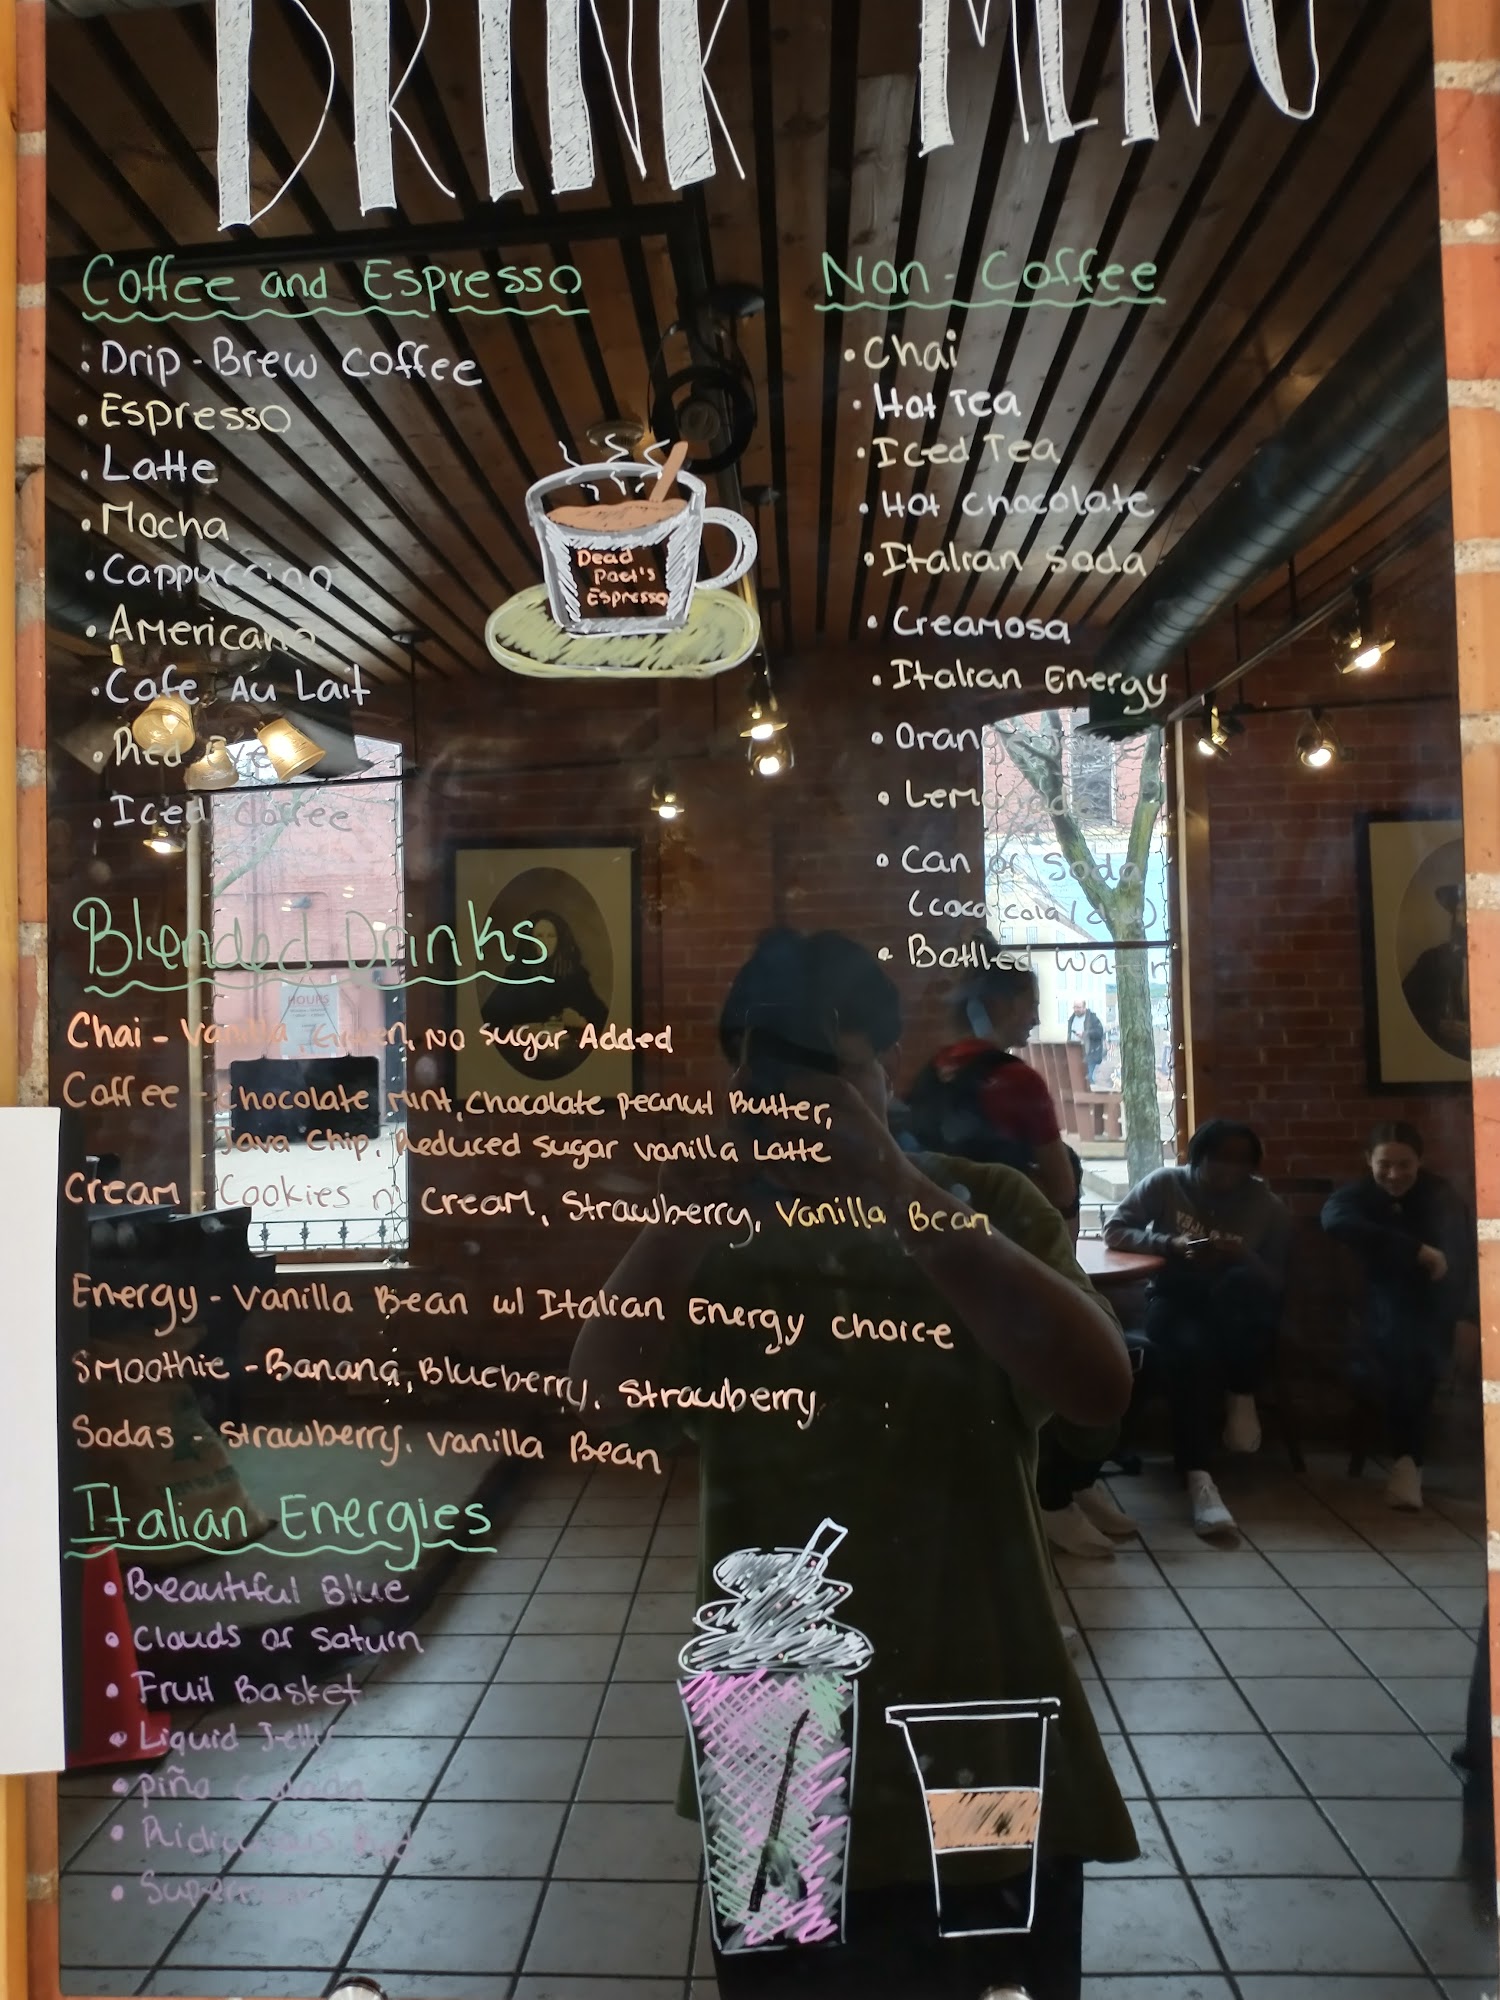 DRINK MENU
Coffee and Espresso
• Drip-Brew Coffee
• Espresso
• Latte
• Mocha
• Cappuccino
• Americano
• Cafe Au Lait
• Red Eye
• Iced Coffee
Dead
Poet's
Espresso
Non-Coffee
• Chai
• Hot Tea
• Iced Tea
• Hot Chocolate
• Italian Soda
• Creamosa
• Italian Energy
• Lemonade
• Can of Soda
(coca cola/
• Bottled Water
Blended Drinks
Chai - Vanilla, Green, No Sugar Added
Coffee - Chocolate Mint, Chocolate Peanut Butter,
Java Chip, Reduced Sugar Vanilla Latte
Cream - Cookies n' Cream, Strawberry, Vanilla Bean
Energy - Vanilla Bean w/ Italian Energy choice
Smoothie - Banana, Blueberry, Strawberry
Sodas - Strawberry, Vanilla Bean
Italian Energies
• Beautiful Blue
• Clouds of Saturn
• Fruit Basket
• Liquid Jelly
• Piña Colada
HOURS